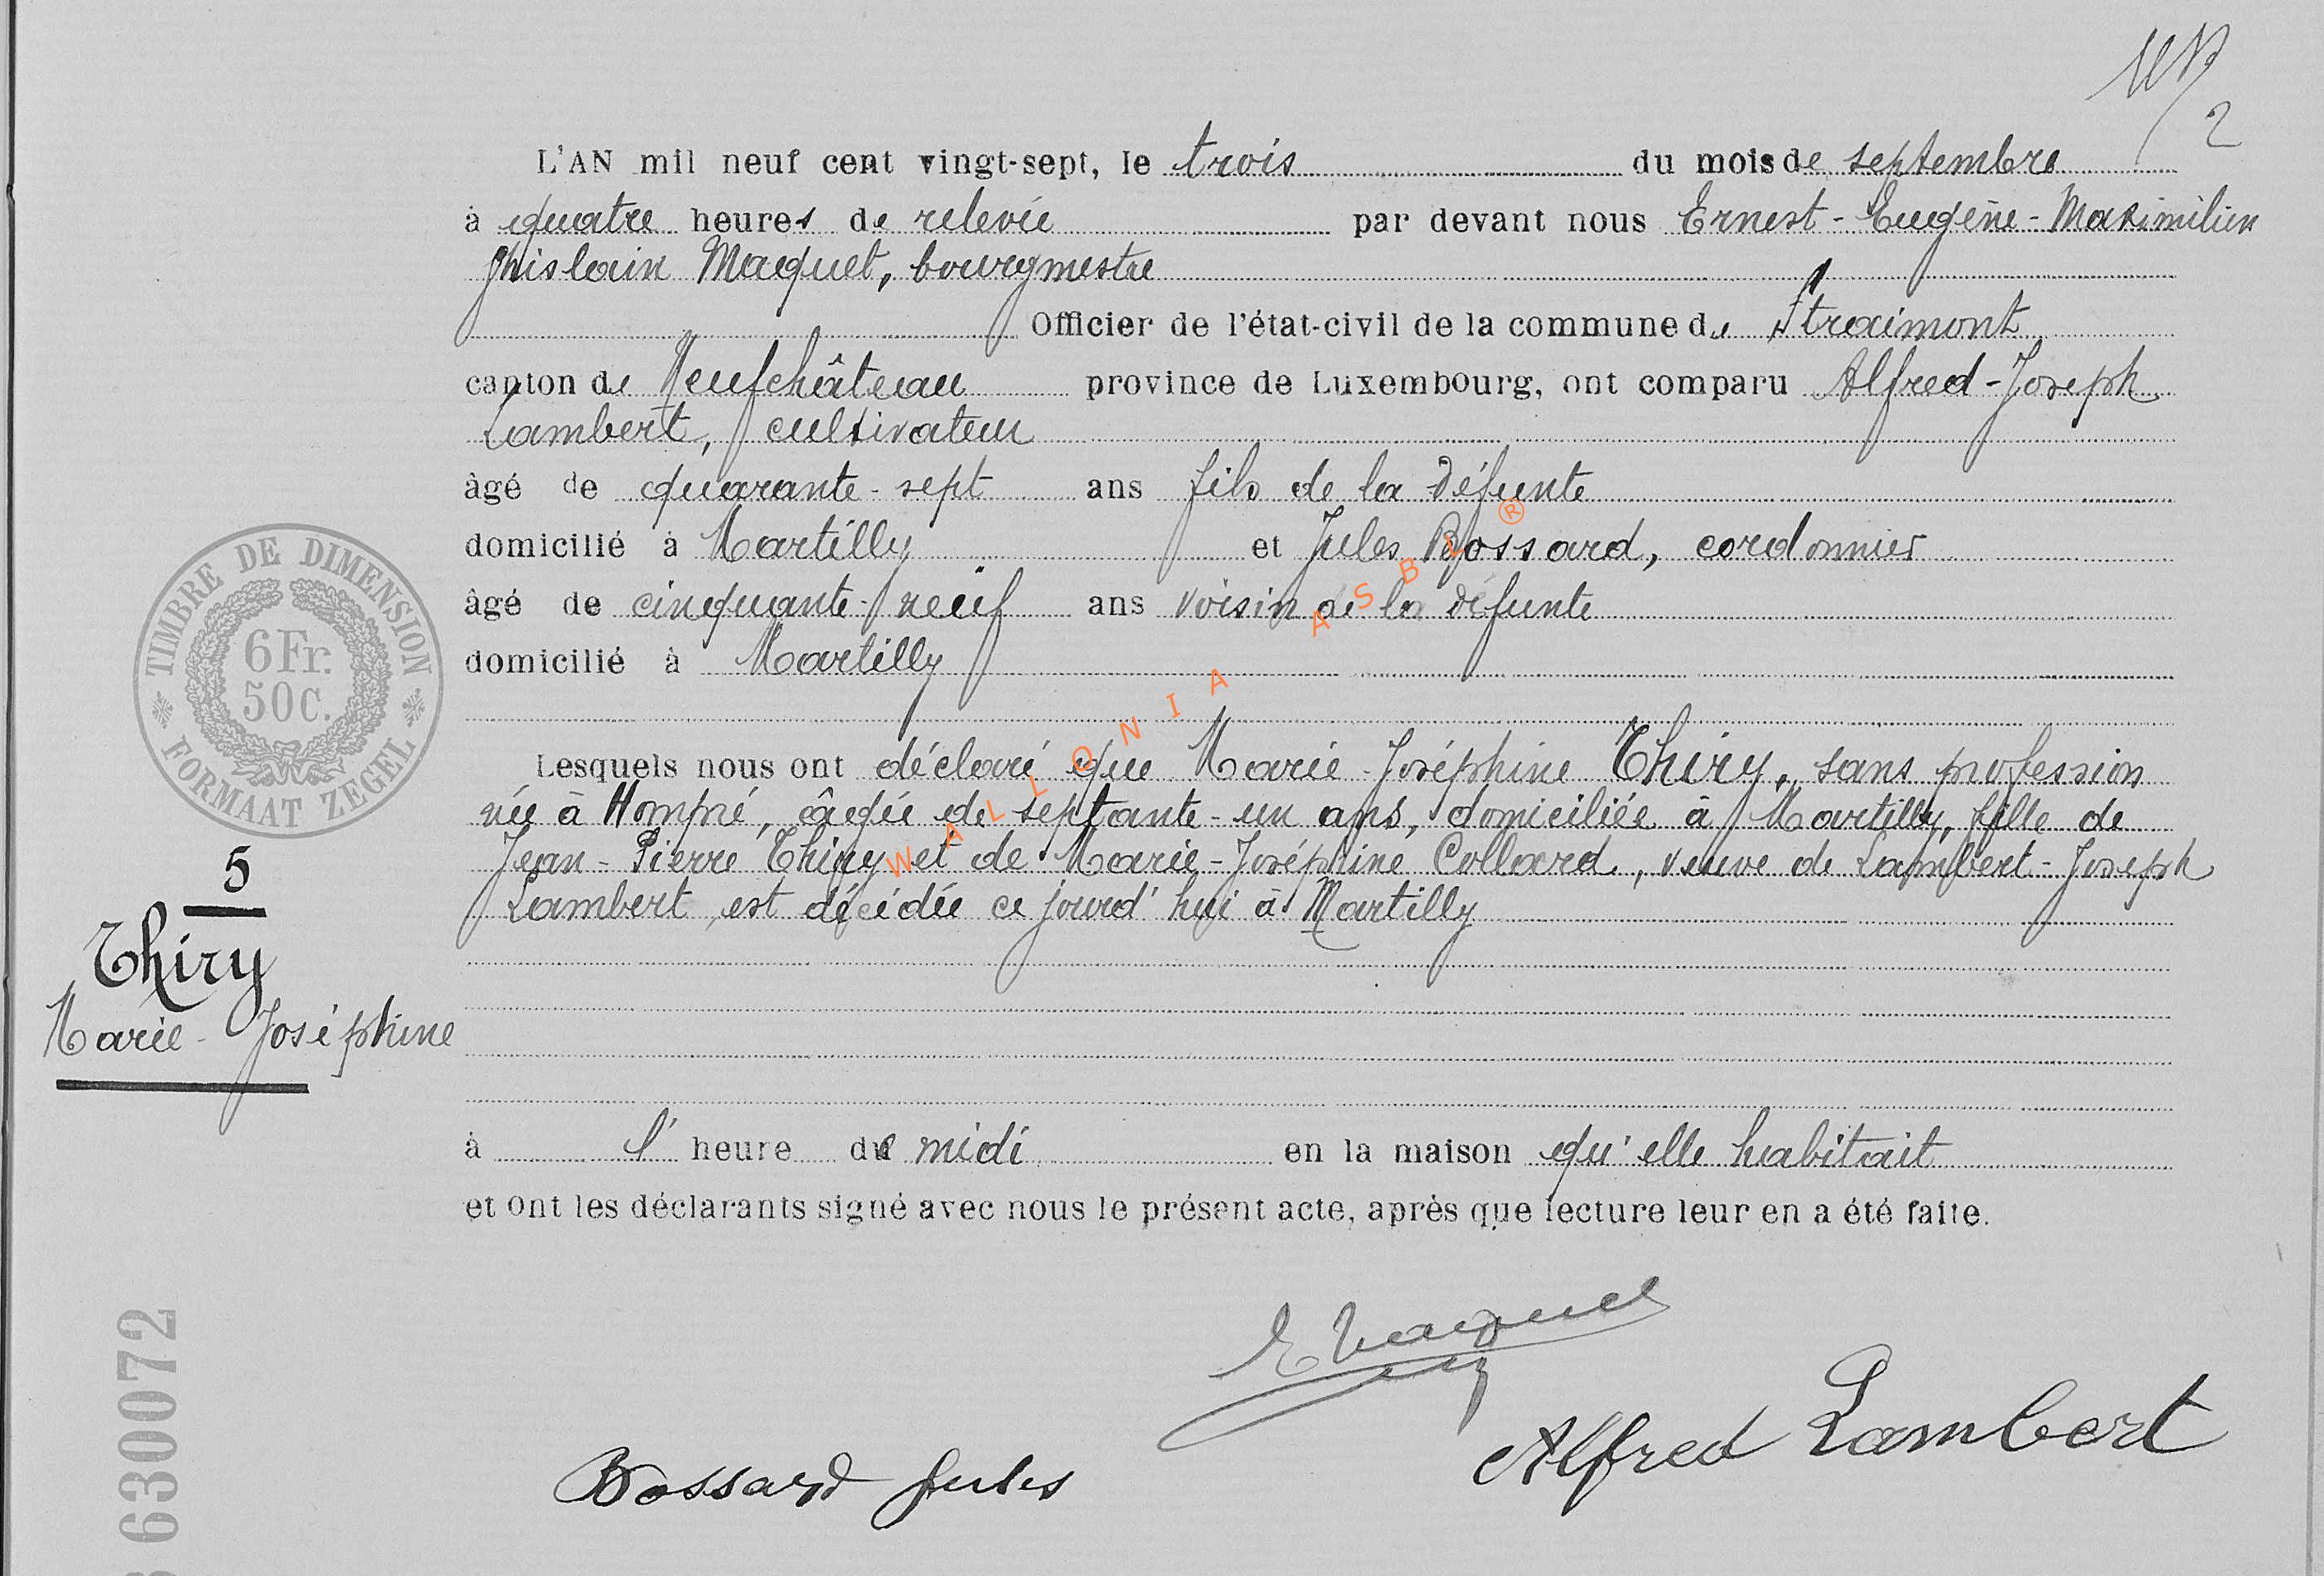 2
L'AN mil neuf cent vingt-sept, le trois du mois de septembre
à quatre heures de relevée par devant nous Ernest-Eugène-Maximilien
Ghislain Maquet, bourgmestre
Officier de l'état-civil de la commune de Straimont
canton de Neufchâteau province de Luxembourg, ont comparu Alfred-Joseph
Lambert, cultivateur
âgé de quarante-sept ans fils de la défunte
domicilié à Martilly et Jules Bossard, cordonnier
âgé de cinquante-neuf ans voisin de la défunte
domicilié à Martilly
Lesquels nous ont déclaré que Marie-Joséphine Thiry, sans profession
née à Hompré, âgée de septante-un ans, domiciliée à Martilly, fille de
Jean-Pierre Thiry et de Marie-Joséphine Collard, veuve de Lambert-Joseph
Lambert, est décédée ce jourd'hui à Martilly
à l'heure de midi en la maison qu'elle habitait
et ont les déclarants signé avec nous le présent acte, après que lecture leur en a été faite.
E Maquet
Alfred Lambert
Bossard Jules
TIMBRE DE DIMENSION
6Fr.
50C.
FORMAAT ZEGEL
5
Thiry
Marie-Joséphine
630072
WALLONIA ASBL ®